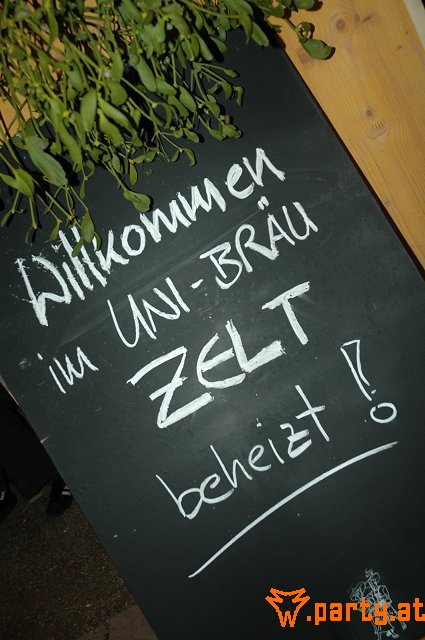 Willkommen
im UNI-BRÄU
ZELT
beheizt!
w.party.at